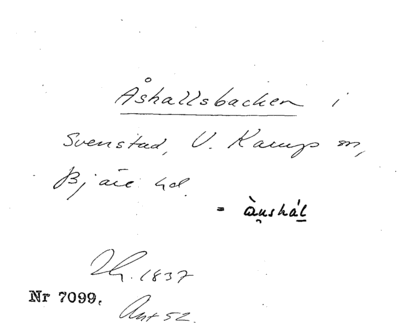 Åshallsbacken i
Svenstad, V. Karup sn,
Bjäre hd.
= àu̯shál
1837
Nr 7099.
Ant 52.